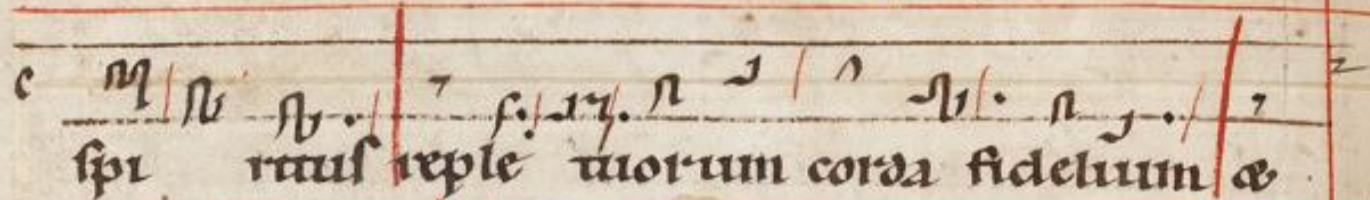 c
spi ritus reple tuorum corda fidelium &